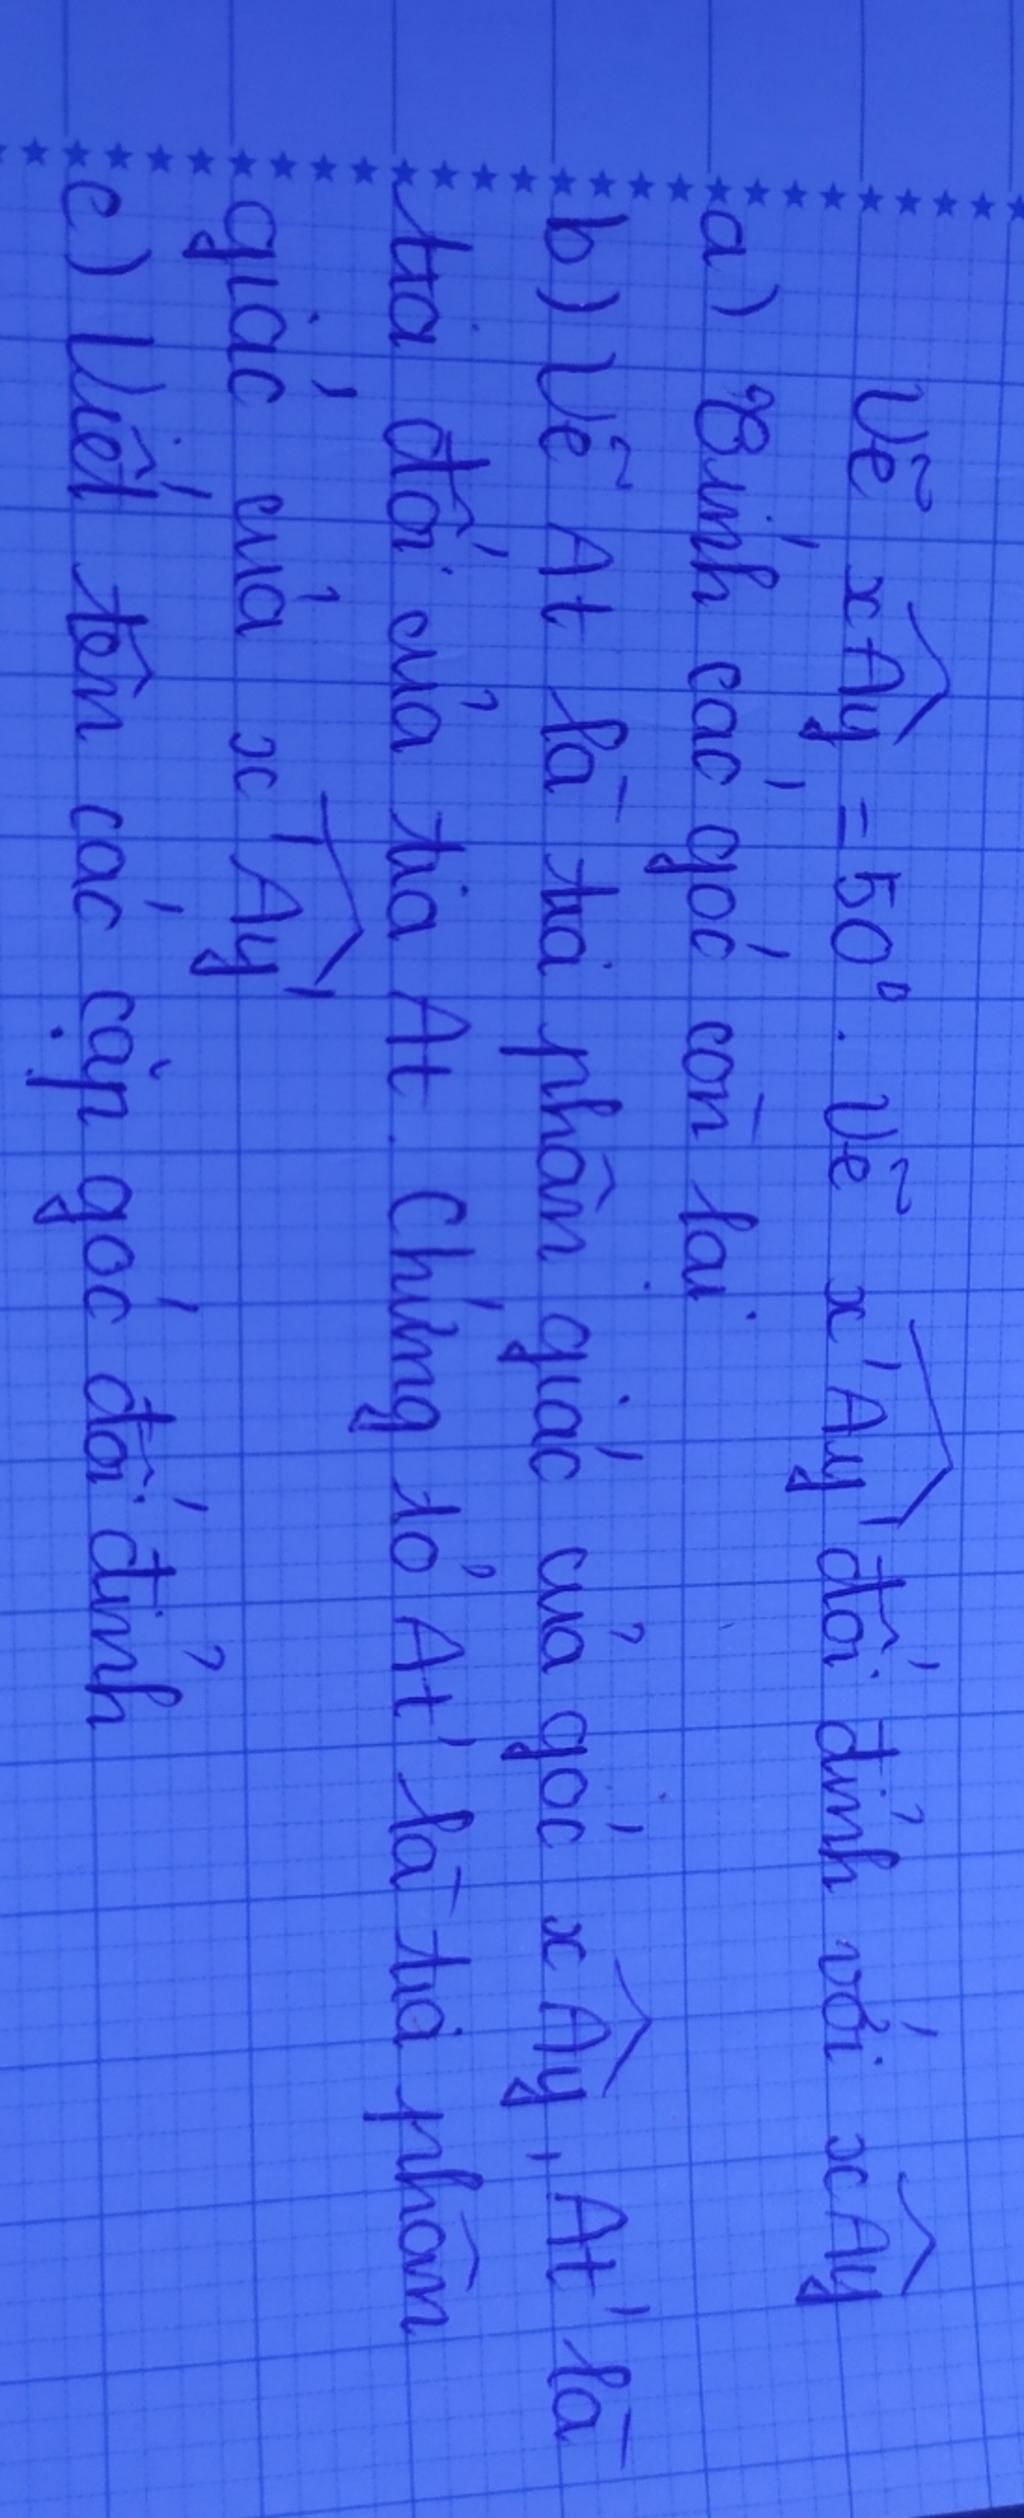 Vẽ xAy = 50°. Vẽ x'Ay' đối đỉnh với xAy
a) Tính các góc còn lại
b) Vẽ At là tia phân giác của góc xAy, At' là
tia đối của tia At. Chứng tỏ At' là tia phân
giác của x'Ay'
c) Viết tên các cặp góc đối đỉnh